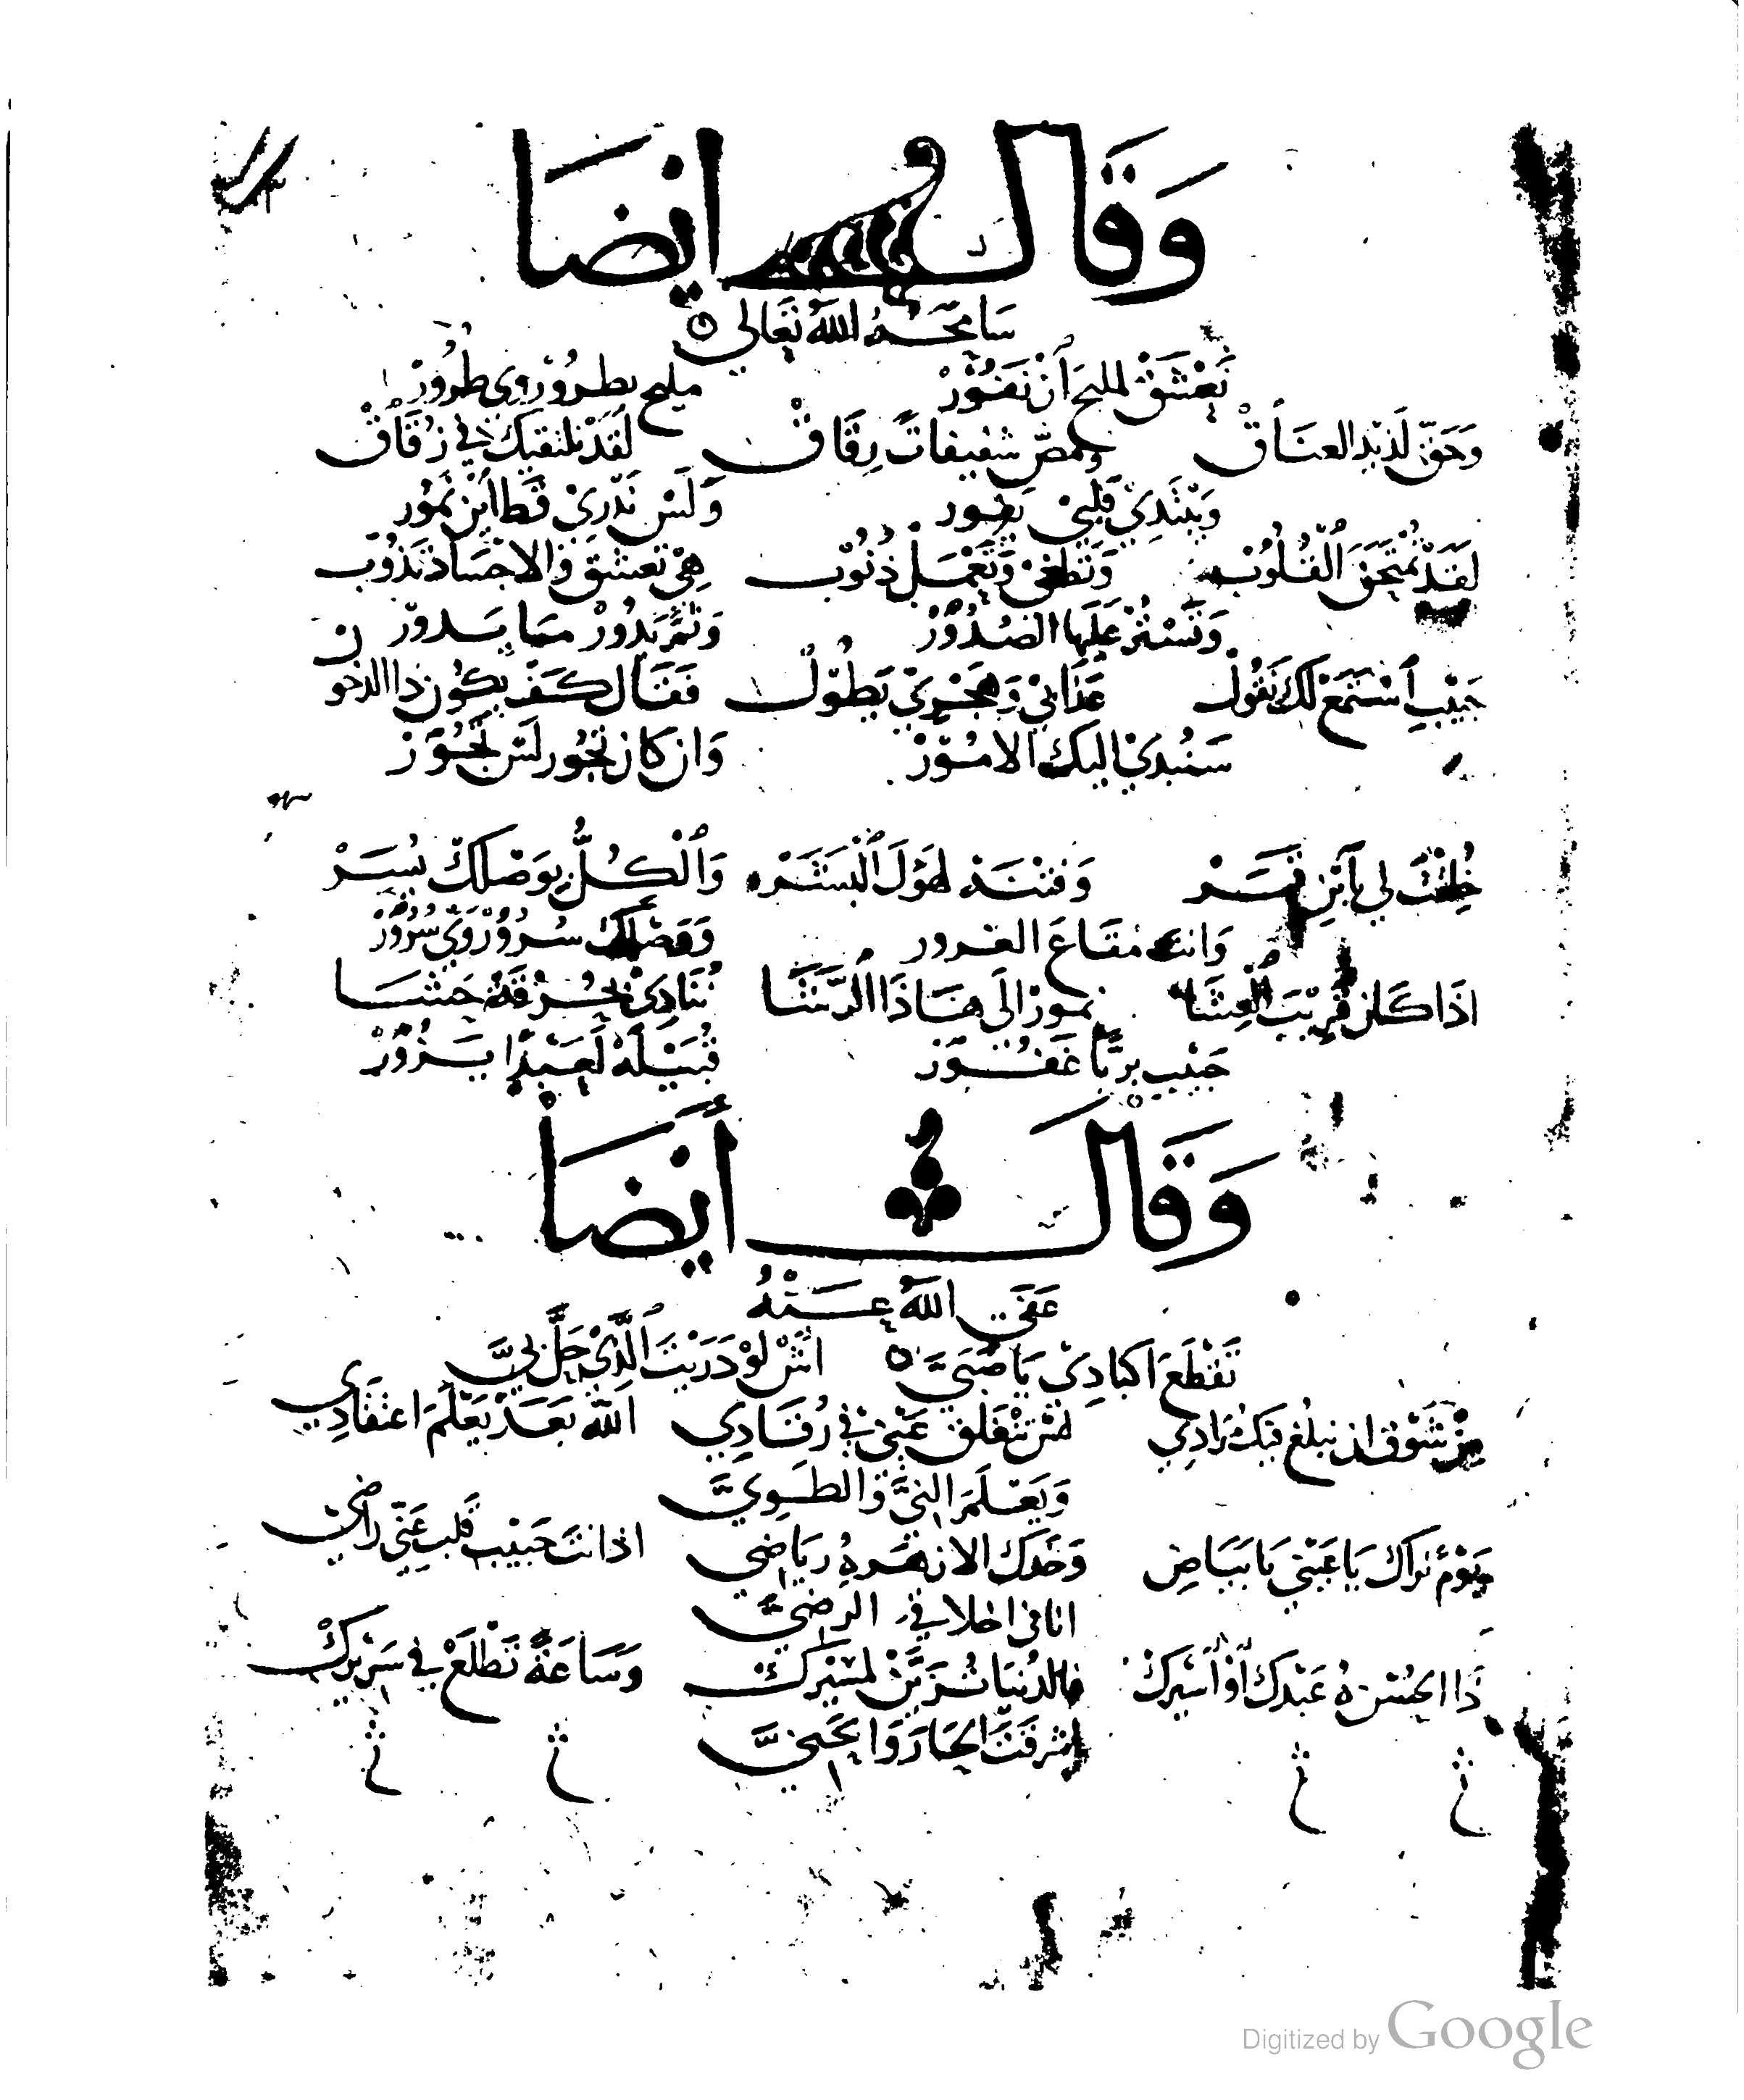 وَقَالَ ايْضَا
سَامَحَهُ اللهُ تَعَالى
نَعْشَقْ مليحَ أنْ نَفُوزْ مليح بطرُوزْ وِى طرُوزْ
وَحَقّ لَذيد العنَاقْ ومصّ شفيفاتْ رِقَاقْ لَقَدْ نلتقيك في زقَاقْ
وَيْبْتَدِي قلبِيْ يَفُور وَلَسْ نَدْرِيْ قَط ايْنْ نَمُور
لقَدْ تُمْتَحَنَ الْقُلُوبْ وَتَطغى وَتَعْمَلْ ذنُوبْ هِيْ تعشق والاجْسَاد تَذُوبْ
وَتَسْتُرْ عَلَيها الصُدُورْ وَثمّ بَدُورْ مَا يَدورْ
حَبيْبِ اسْتَمَعْ لَكْ نَقُولْ عَذَابيْ وَهَجْرِيْ يَطُوْلْ فَقَال كَفْ يكون ذا الدخو
ل
سَنُبدِيْ اليكَ الامُوْرْ وَان كان تجُور لَسْ نَجُوزْ
خُلقْتْ لي يابْنِ قَمَرْ وَفتْنَه لهَوْلَ الْبَشَرْ وَالْكُلّ بوَصْلكْ يُسَرْ
وَانت مَتَاعَ الغرور وَوَصْلكْ سُرُورْ وِىْ سُرُورْ
اذَا كان قريْبَ الْعِشَا نمورْ الَى هَذَا الرَّشَا نُنَادِيْ بحُرْقَهْ حَشَا
حَبيْبِ بربّا غَفُورْ قُبَيْلَهْ لَعَبْدًا يَزُورْ
وَقَالَ أيْضَا
عَفَى اللهُ عَنْهُ
تَقْطَعَ اكبادِيْ يَا صُبَيَّ اشْ لَوْ دَرَيْتَ الَّذِيْ حَلّ بيَّ
مِنْ شَوْق ان نبلغ فيك مُرَادِي لَسْ تَنْغَلق عَيْنيْ في رُقَادِي اللهْ بَعَدْ يَعْلَمْ اعتقادِي
وَيَعْلَمَ النيَّ وَالطَوِيَّ
وَيَوْم نراكْ يَا عَيْني يَا بيَاضِ وَخَدكَ الازهرهُ رياضِي اذا انتَ حَبيْب قلب عَنّي راضي
انا في اخلافي الرضيَّ
ذَا الحُسْن هُ عَبْدكْ أوْ أسْيرَكْ فالدُنيَا تُزَيَّنْ لمسْيرَكْ وَسَاعَةْ تَطْلَعْ في سَرْيرَكْ
اشرقَتَ الحارَ وَالحَنيَّ
Digitized by Google